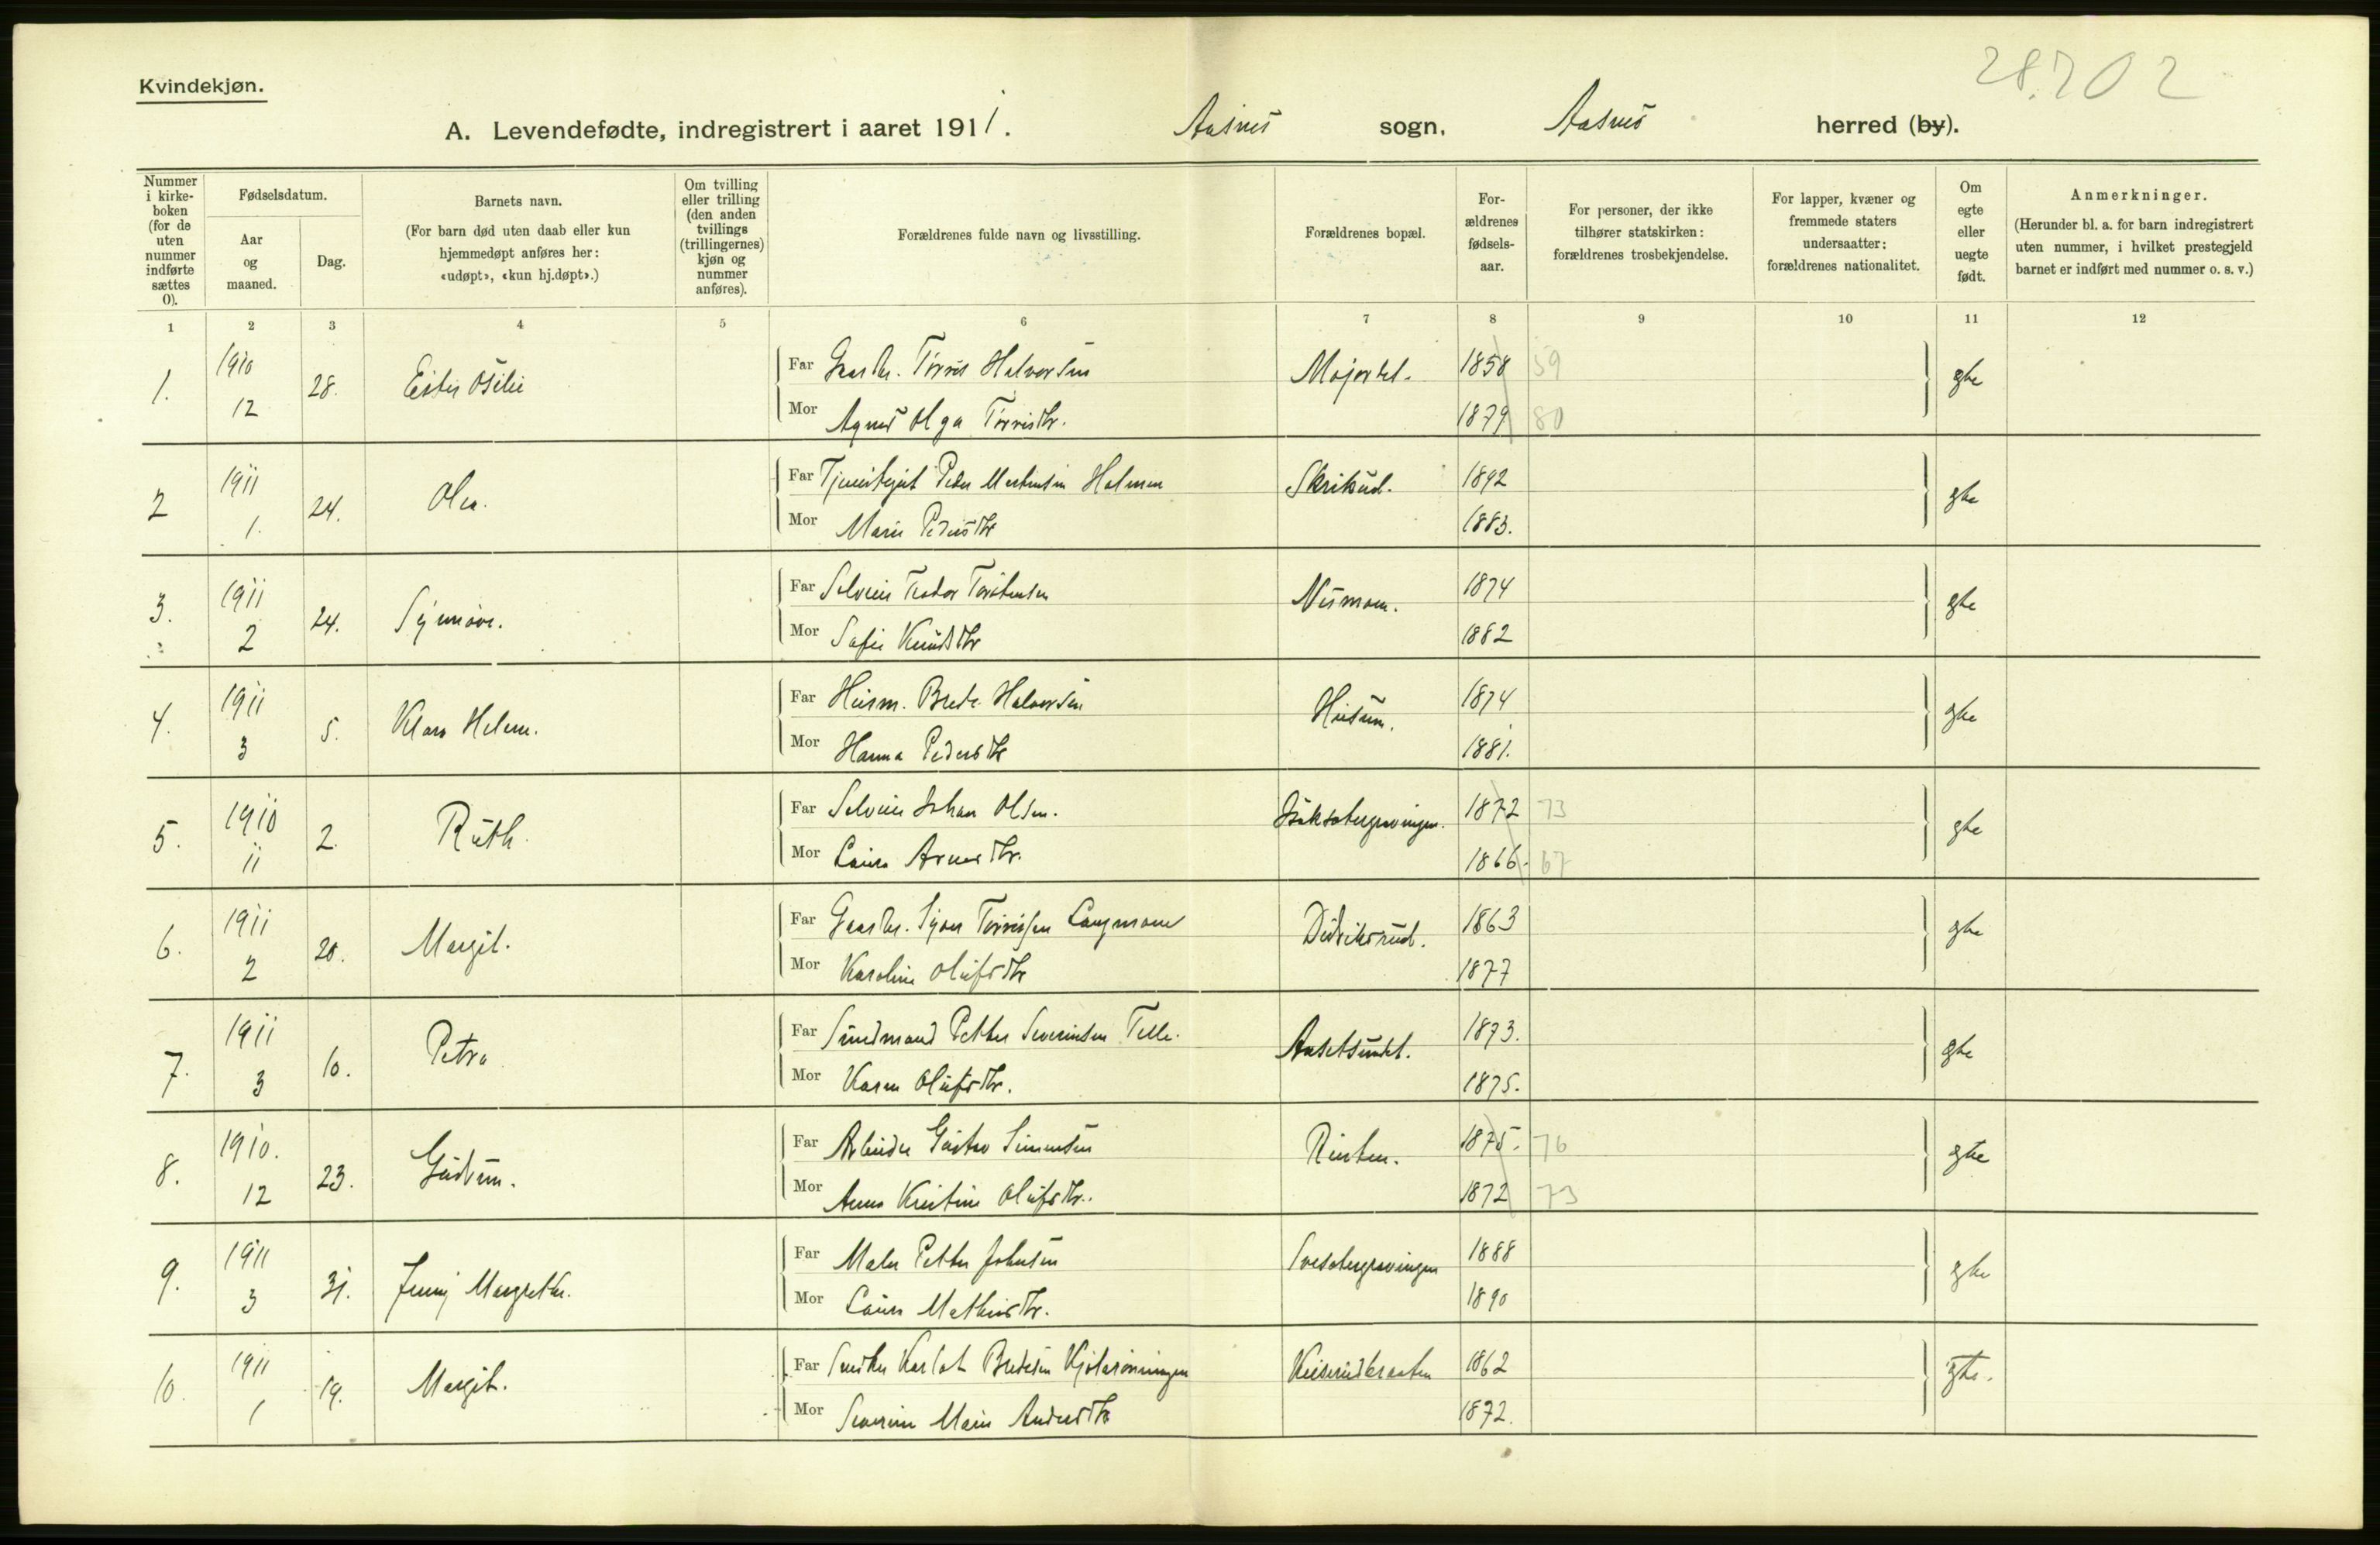 28.202
Kvindekjøn.
A. Levendefødte, indregistrert i aaret 1911. Aasnes sogn, Aasnes herred (by).
Nummer i kirkeboken (for de uten nummer indførte sættes 0).
Fødselsdatum.
Aar og maaned.
Dag.
Barnets navn.
(For barn død uten daab eller kun hjemmedøpt anføres her: «udøpt», «kun hj.døpt».)
Om tvilling eller trilling (den anden tvillings (trillingernes) kjøn og nummer anføres).
Forældrenes fulde navn og livsstilling.
Forældrenes bopæl.
Forældrenes fødselsaar.
For personer, der ikke tilhører statskirken: forældrenes trosbekjendelse.
For lapper, kvæner og fremmede staters undersaatter: forældrenes nationalitet.
Om egte eller uegte født.
Anmerkninger.
(Herunder bl. a. for barn indregistrert uten nummer, i hvilket prestegjeld barnet er indført med nummer o. s. v.)
1 2 3 4 5 6 7 8 9 10 11 12
1. 1910 12 28. Ester Otilie
Far Gaarbr. Törris Halvorsen Majorbel. 1858 59 egte
Mor Agnes Olga Törrisdtr. 1879 80
2 1911 1. 24. Olea.
Far Peder Martinsen Holmen Skrikud. 1892 egte
Mor Marie Pedersdtr 1883.
3. 1911 2 24. Synnöve.
Far Selveier Teodor Torstensen Nismoen. 1874 egte
Mor Sofie Knudsdtr 1882
4. 1911 3 5. Klara Helene.
Far Husm. Brede Halvorsen Husum. 1874 egte
Mor Hanna Pedersdtr 1881.
5. 1910 11 2. Ruth.
Far Selveier Johan Olsen. 1872 73 egte
Mor Laura Arnesdtr. 1866. 67
6. 1911 2 20. Margit.
Far Gaarbr. Syver Törrissen Langmoen Didriksrud. 1863 egte
Mor Karoline Olufsdtr 1877
7. 1911 3 10. Petra
Far Petter Severinsen Telle. Aasetsundet. 1873. egte
Mor Karen Olufsdtr. 1875.
8. 1910. 12 23. Gudrun.
Far Arbeider Gustav Simensen 1875. 76 egte
Mor Anna Kristine Olufsdtr. 1872 73
9. 1911 3 31. Jenny Margrethe.
Far Maler Petter Johnsen 1888 egte
Mor Laura Mathisdtr. 1890
10. 1911 1 19. Margit.
Far Karl Bredesen 1862 egte.
Mor Severine Marie Andersdtr 1872.